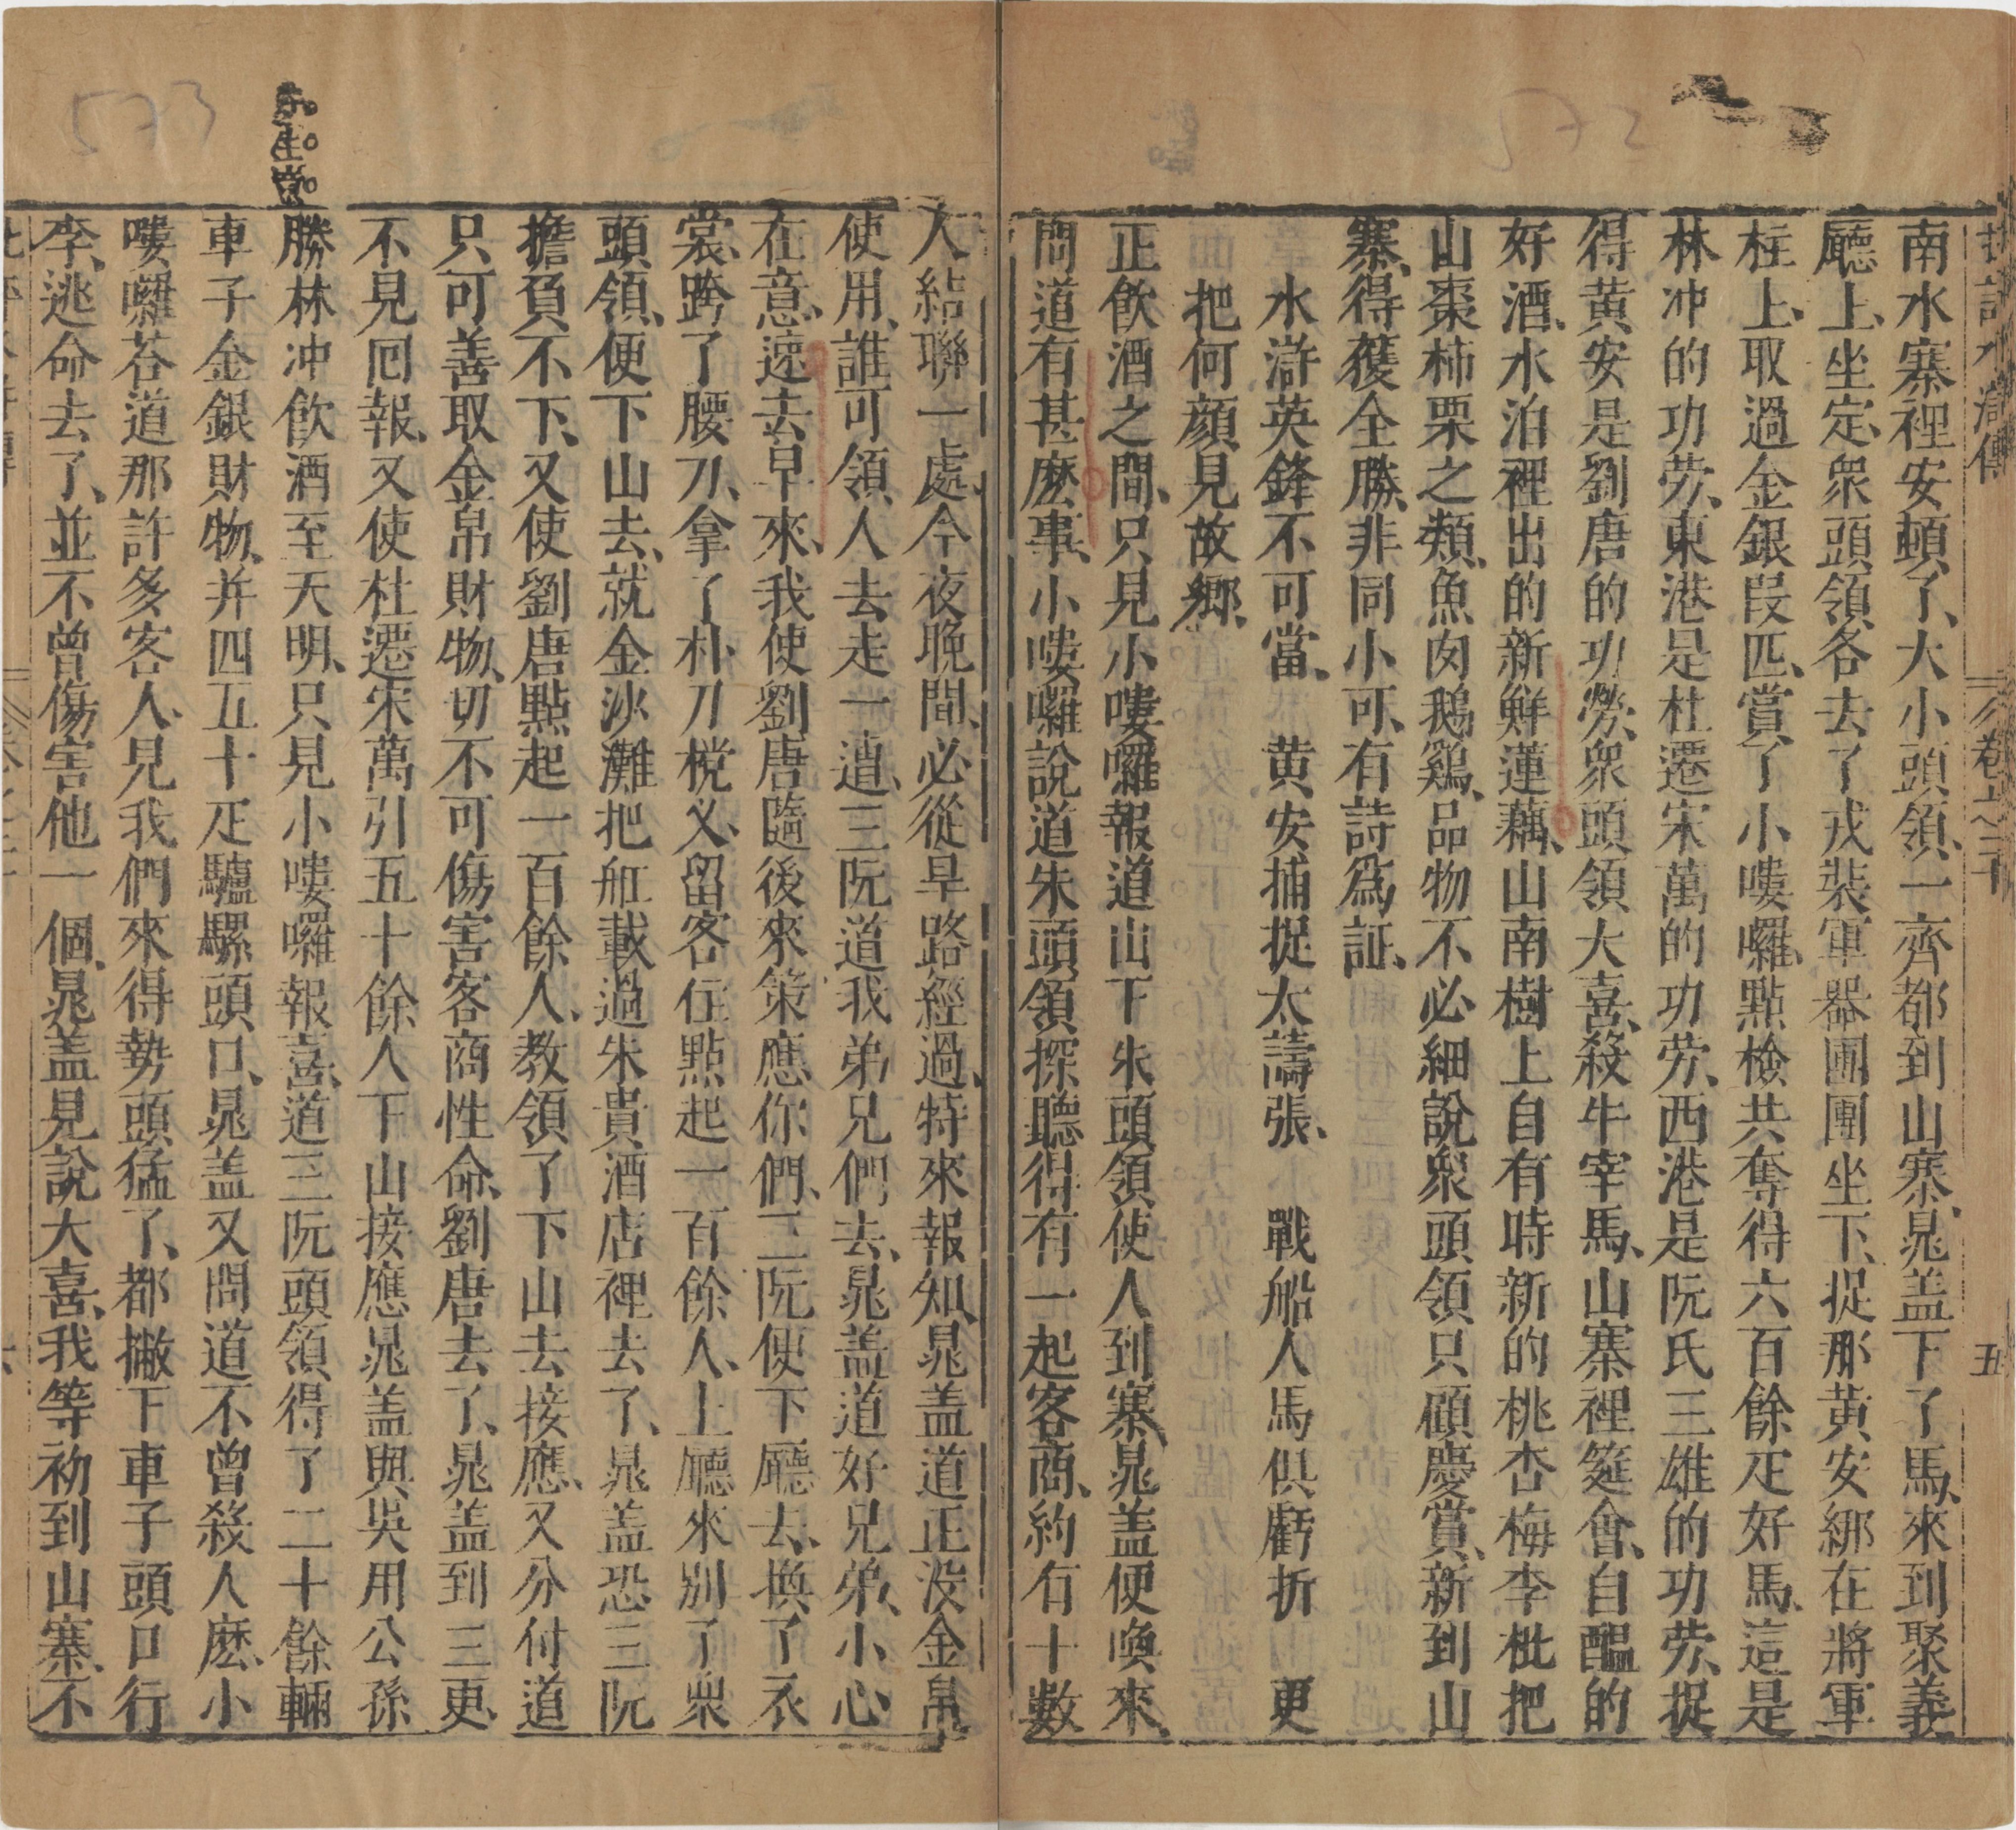 南水寨裡安頓了、大小頭領、一齊都到山寨、晁盖下了馬、來到聚義
廳上、坐定、衆頭領各去了戎裝軍器團團坐下、捉那黄安綁在將軍
柱上、取過金銀段匹、賞了小嘍囉、點檢共奪得六百餘疋好馬、這是
林冲的功劳、東港是杜遷宋萬的功劳、西港是阮氏三雄的功劳、捉
得黄安是劉唐的功勞、衆頭領大喜、殺牛宰馬、山寨裡筵會、自醖的
好酒、水泊裡出的新鮮蓮藕、山南樹上自有時新的桃杏梅李枇把
山棗柿栗之類、魚肉鵝鷄、品物不必細說衆頭領只顧慶賞、新到山
寨、得獲全勝、非同小可、有詩爲証、
水滸英鋒不可當、 黄安捕捉太譸張、 戰船人馬俱虧折 更
把何顔見故鄉、
正飲酒之間、只見小嘍囉報道山下朱頭領使人到寨、晁盖便喚來、
問道有甚麽事、小嘍囉說道朱頭領探聽得有一起客商、約有十數
人結聯一處、今夜晚間、必從旱路經過、特來報知、晁盖道正没金帛
使用、誰可領人去走一遭、三阮道我弟兄們去、晁盖道好兄弟、小心
在意、速去早來、我使劉唐隨後來策應你們、三阮便下廳去、換了衣
裳、跨了腰刀、拿了朴刀㭱义、留客住點起一百餘人、上廳來别了衆
頭領、便下山去、就金沙灘把舡載過朱貴酒店裡去了、晁盖恐三阮
擔負不下、又使劉唐點起一百餘人、教領了下山去接應、又分付道
只可善取金帛財物、切不可傷害客商性命、劉唐去了、晁盖到三更、
不見囘報、又使杜遷宋萬引五十餘人下山接應晁盖與吳用公孫
勝林冲飲酒至天明、只見小嘍囉報喜、道三阮頭領得了二十餘輛
車子金銀財物、并四五十疋驢騾頭口、晁盖又問道不曾殺人麽、小
嘍囉荅道那許多客人、見我們來得勢頭猛了、都撇下車子頭口行
李、逃命去了、並不曾傷害他一個、晁盖見說大喜、我等初到山寨、不
五
573
572